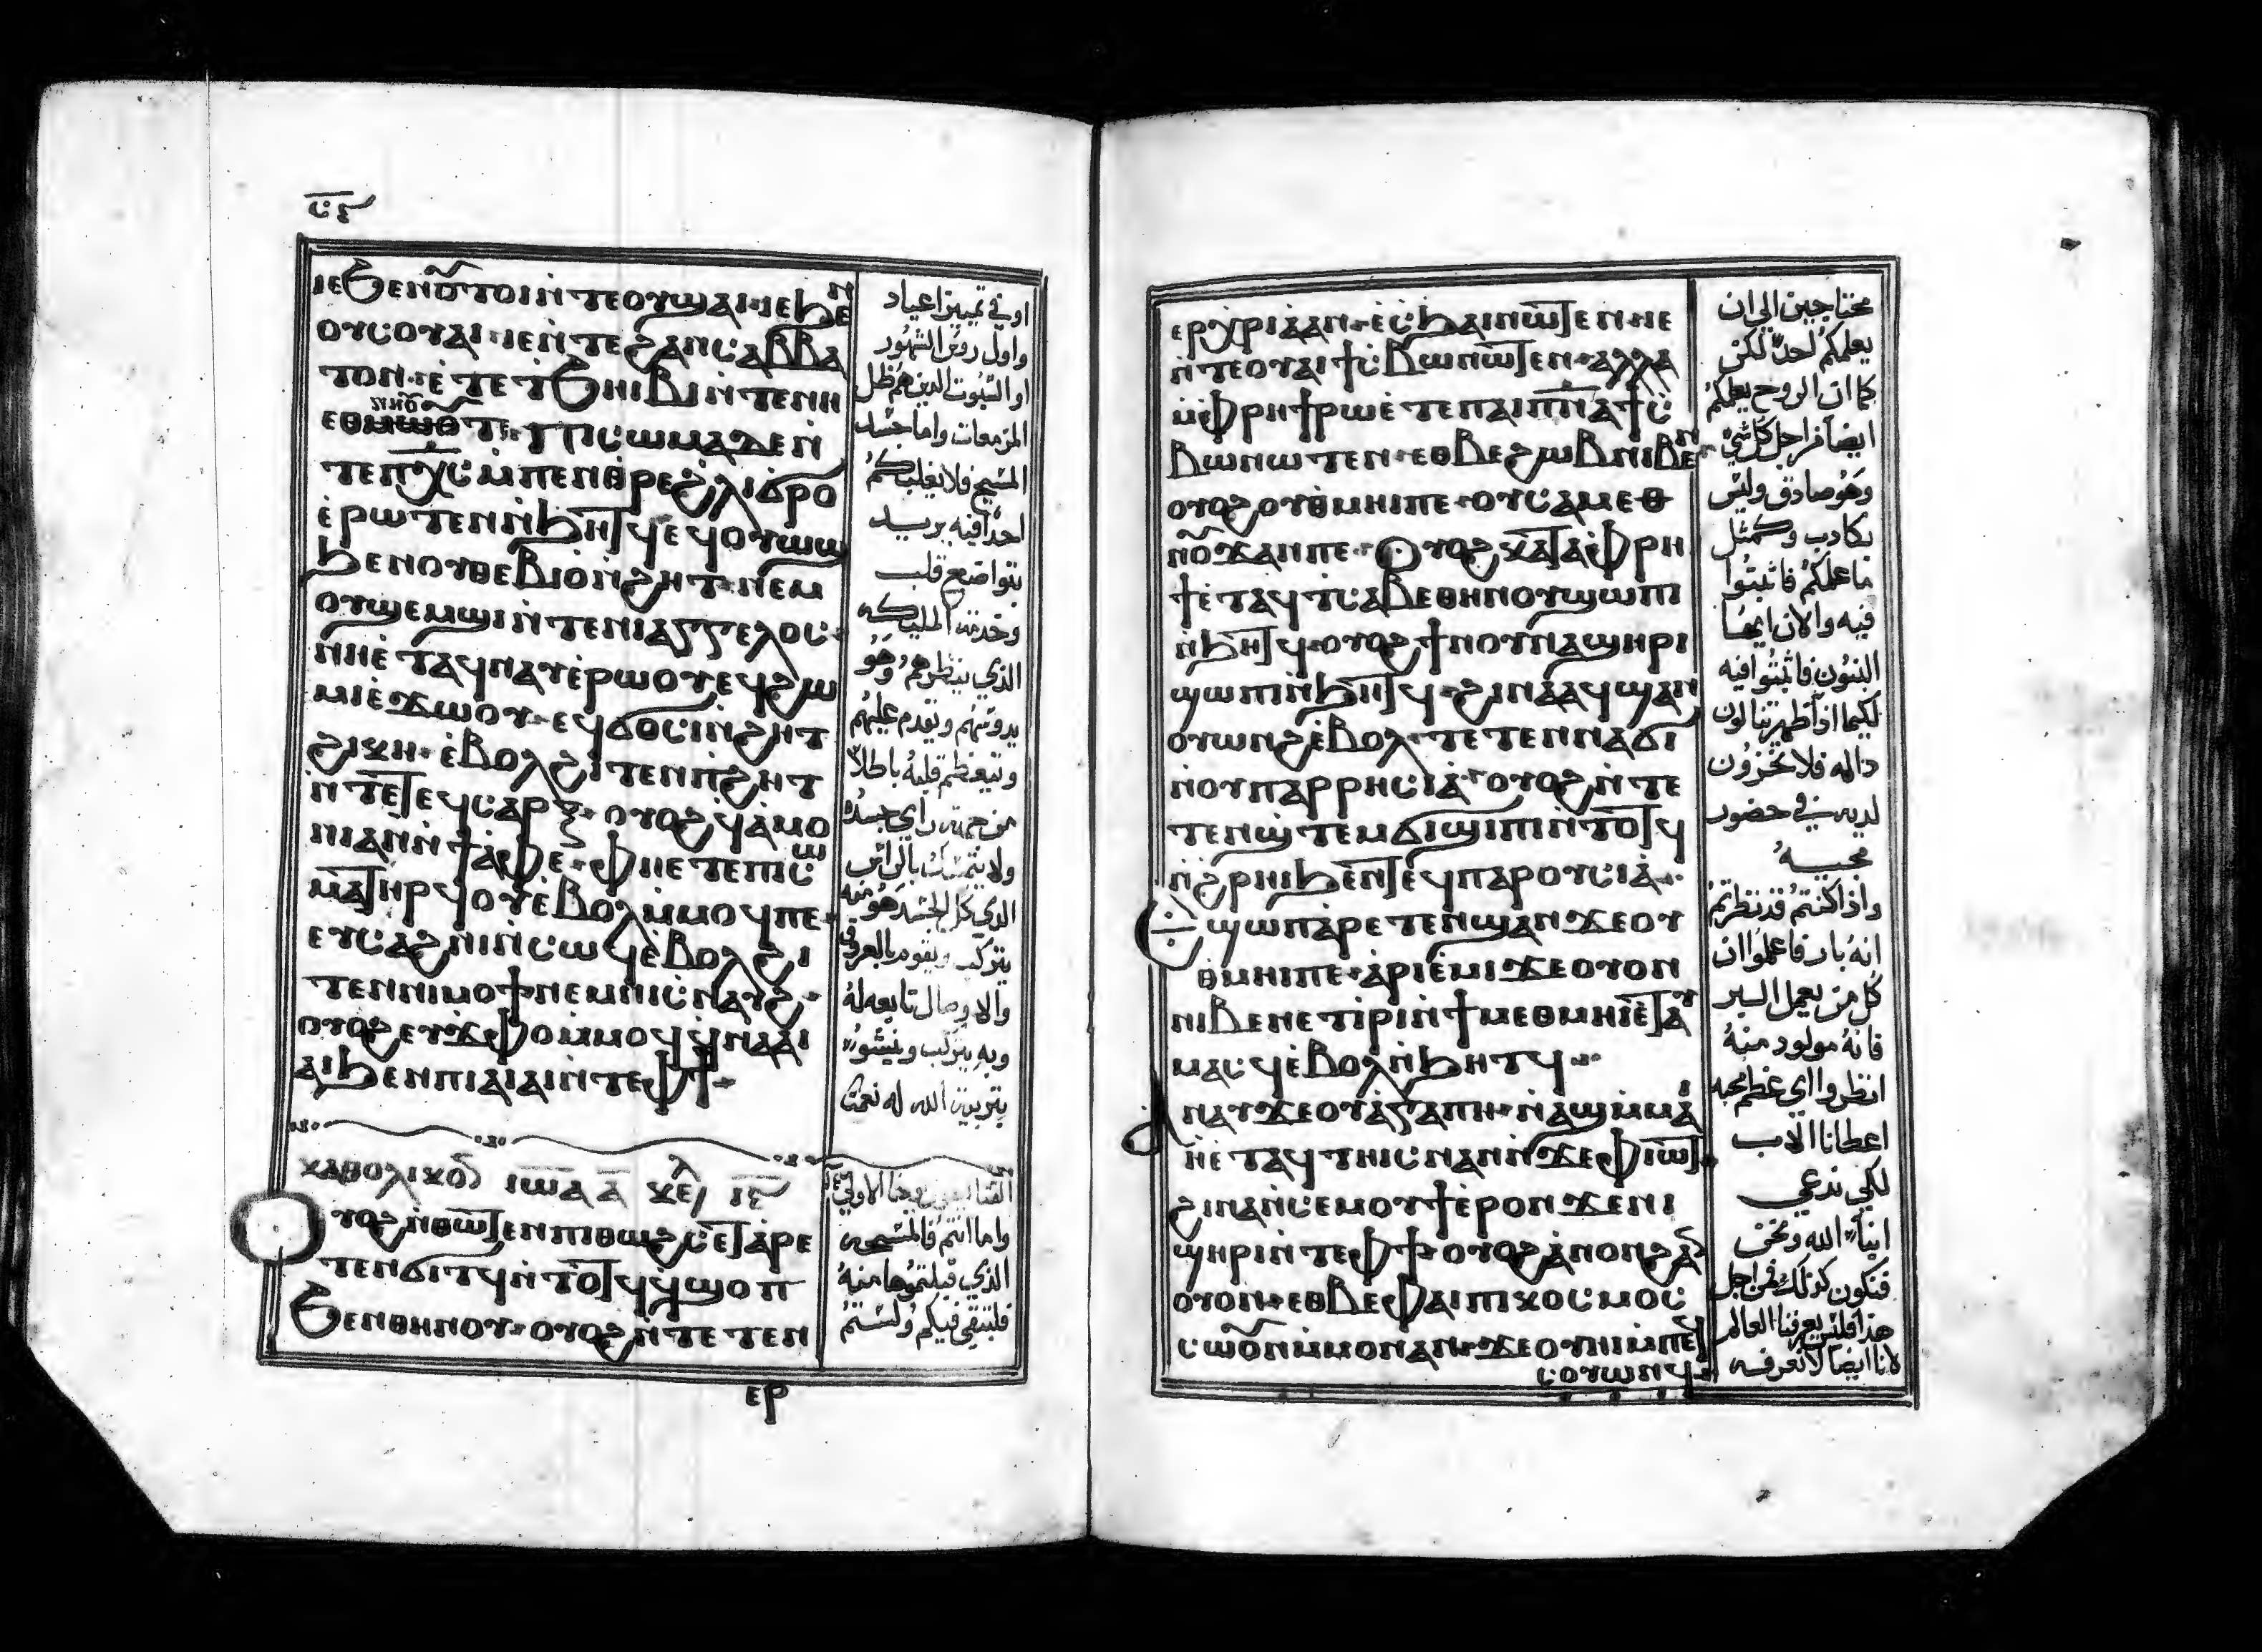 ⲓⲉϧⲉⲛⲟ̃ⲧⲟⲓⲛ̇ⲧⲉⲟⲩϣⲁⲓ·ⲓⲉϧⲉⲛ
ⲟⲩⲥⲟⲩⲁⲓ·ⲓⲉⲛ̇ⲧⲉϩⲁⲛⲥⲁⲃⲃⲁ
ⲧⲟⲛ·ⲉ̇ⲧⲉⲧ̇ϧⲏⲓⲃⲓⲛ̇ⲧⲉⲛⲏ
ⲧⲉ·ⲡⲓⲥⲱⲙⲁⲇⲉⲛ̇
ⲧⲉⲡⲭ̅ⲥ̅ⲙ̇ⲡⲉⲛⲑⲣⲉϩⲗⲓϭⲣⲟ
ⲉ̇ⲣⲱⲧⲉⲛⲛ̇ϧⲏⲧϥⲉϥⲟⲩⲱϣ
ϧⲉⲛⲟⲩⲑⲉⲃⲓⲟⲛ̇ϩⲏⲧ·ⲛⲉⲙ
ⲟⲩϣⲉⲙϣⲓⲛ̇ⲧⲉⲛⲓⲁⲅⲅⲉⲗⲟⲥ·
ⲛⲏⲉ̇ⲧⲁϥⲛⲁⲩⲉ̇ⲣⲱⲟⲩⲉϥϩⲱ
ⲙⲓⲉ̇ϫⲱⲟⲩ·ⲉϥϭⲟⲥⲓⲛ̇ϩⲏⲧ
ϩⲓⲕⲏ·ⲉ̇ⲃⲟⲗϩⲓⲧⲉⲛⲡ̇ϩⲏⲧ
ⲛ̇ⲧⲉⲧⲉϥⲥⲁⲣⲝ·ⲟⲩⲟϩϥ̇ⲁ̇ⲙⲟ
ⲛⲓⲁⲛⲛ̇ϯⲁ̇ⲫⲉ·ⲫⲏⲉⲧⲉⲡⲓⲥⲱ
ⲙⲁⲧⲏⲣϥⲟⲩⲉ̇ⲃⲟⲗⲙ̇ⲙⲟϥⲡⲉ·
ⲉⲩⲥⲁϩⲛⲓⲛ̇ⲥⲱϥⲉ̇ⲃⲟⲗϩⲓ
ⲧⲉⲛⲛⲓⲙⲟϯⲛⲉⲙⲛⲓⲥ̇ⲛⲁⲩϩ·
ⲟⲩⲟϩⲉⲩϫⲫⲟⲙ̇ⲙⲟϥϥ̇ⲛⲁⲁⲓ
ⲁⲓϧⲉⲛⲡⲓⲁⲓⲁⲓⲛ̇ⲧⲉⲫϯ·
ⲕⲁⲑⲟⲗⲓⲕⲟⲛ ⲓⲱⲁ ⲁ̅ ⲕⲉⲗ
ⲟⲩⲟϩⲛ̇ⲑⲱⲧⲉⲛⲡⲓⲑⲱϩⲥⲉⲧⲁ̇ⲣⲉ
ⲧⲉⲛϭⲓⲧϥⲛ̇ⲧⲟⲧϥϥ̇ϣⲟⲡ
ϧⲉⲛⲑⲏⲛⲟⲩ·ⲟⲩⲟϩⲛ̇ⲧⲉⲧⲉⲛ
ⲉⲣ
واول رووس الشهور
او السبوت الذين هم ظل
المزمعات واما جسد
المسيح فلا يغلبكم
احدا فيه يريد
بتواضع قلب
وخدمة الملايكه
الذي ينظرهم وهو
ويتعظم قلبه باطلا
من جهة راي جسده
ولا يتمسك بالراس
الذي كل الجسد هو منه
يتركب ويقوم بالعروق
والاوصال تابعه له
بتربية الله له نعمتا
واما انتم فالمسحه
الذي قبلتموها منه
فلتبقي فيكم ولستم
ⲉⲣⲭⲣⲓⲁ̇ⲁⲛ·ⲉ̇ⲥ̇ϧⲁⲓⲛⲱⲧⲉⲛ·ⲓⲉ
ⲛ̇ⲧⲉⲟⲩⲁⲓϯⲥ̇ⲃⲱⲛⲱⲧⲉⲛ·ⲁⲗⲗⲁ
ⲙ̇ⲫⲣⲏϯⲣⲱⲉ̇ⲧⲉⲡⲁⲓⲡ̅ⲛ̅ⲁ̅ϯⲥ̇
ⲃⲱⲛⲱⲧⲉⲛ·ⲉⲑⲃⲉϩⲱⲃⲛⲓⲃⲉⲛ
ⲟⲩⲟϩⲟⲩⲑⲙⲏⲓⲡⲉ·ⲟⲩⲥⲁⲙⲉⲑ
ⲛⲟ̃ϫⲁⲛⲡⲉ·ⲟⲩⲟϩⲕⲁⲧⲁⲫⲣⲏ
ϯⲉ̇ⲧⲁϥⲧⲥⲁⲃⲉⲑⲏⲛⲟⲩϣⲱⲡⲓ
ⲛ̇ϧⲏⲧϥ·ⲟⲩⲟϩϯⲛⲟⲩⲛⲁϣⲏⲣⲓ
ϣⲱⲡⲓⲛ̇ϧⲏⲧϥ·ϩⲓⲛⲁⲁϥϣⲁⲛ
ⲟⲩⲱⲛϩⲉ̇ⲃⲟⲗ·ⲧⲉⲧⲉⲛⲛⲁϭⲓ
ⲛ̇ⲟⲩⲡⲁⲣⲣⲏⲥⲓⲁ̇·ⲟⲩⲟϩⲛ̇ⲧⲉ
ⲧⲉⲛϣ̇ⲧⲉⲙϭⲓϣⲓⲡⲓⲛ̇ⲧⲟⲧϥ
ⲛ̇ϩⲣⲏⲓϧⲉⲛⲧⲉϥⲡⲁⲣⲟⲩⲥⲓⲁ̇·
ϣⲱⲡⲁ̇ⲣⲉⲧⲉⲛϣⲁⲛϫⲉⲟⲩ
ⲑⲙⲏⲓⲡⲉ·ⲁ̇ⲣⲓⲉ̇ⲙⲓϫⲉⲟⲩⲟⲛ
ⲛⲓⲃⲉⲛⲉⲧⲓ̇ⲣⲓⲛ̇ϯⲙⲉⲑⲙⲏⲓⲉ̇ⲧⲁⲩ
ⲙⲁⲥϥⲉ̇ⲃⲟⲗⲛ̇ϧⲏⲧϥ·
ⲁⲛⲁⲩϫⲉⲟⲩⲁ̇ⲅⲁⲡⲏ·ⲛ̇ⲁϣⲙ̇ⲙⲁⲓ
ⲛ̇ⲉ̇ⲧⲁϥⲧⲏⲓⲥⲛⲁⲛⲛ̇ϫⲉⲫⲓⲱⲧ·
ϩⲓⲛⲁⲛ̇ⲥⲉⲙⲟⲩϯⲉ̇ⲣⲟⲛϫⲉⲛⲓ
ϣⲏⲣⲓⲛ̇ⲧⲉⲫϯ·ⲟⲩⲟϩⲁ̇ⲛⲟⲛϩⲁ
ⲟⲩⲟⲛ·ⲉⲑⲃⲉⲫⲁⲓⲡⲓⲕⲟⲥⲙⲟⲥ
ⲥⲱⲟ̃ⲛⲙ̇ⲙⲟⲛⲁⲛ·ϫⲉⲟⲩⲏⲓⲙ̇ⲡⲉϥ
ⲥⲟⲩⲱⲛϥ·
محتاجين الي ان
يعلمكم احد لكن
كما ان الروح يعلمكم
ايضا من اجل كل شي
وهو صادق وليس
بكادب وكمثل
ما علمكم فاثبتوا
فيه والان ايها
البنون فاثبتوا فيه
لكيما اذا ظهر تنالون
داله فلا تخزون
لديه في حضور
مجيه
واذا كنتم قد نظرتم
انه بار فاعلموا ان
كل من يعمل البر
فانه مولود منه
انظروا اي عظم محبه
اعطانا الاب
لكي ندعي
ابنا الله ونحن
فنكون كذلك من اجل
هذا فليس يعرفنا العالم
لانا ايضا لا نعرفه